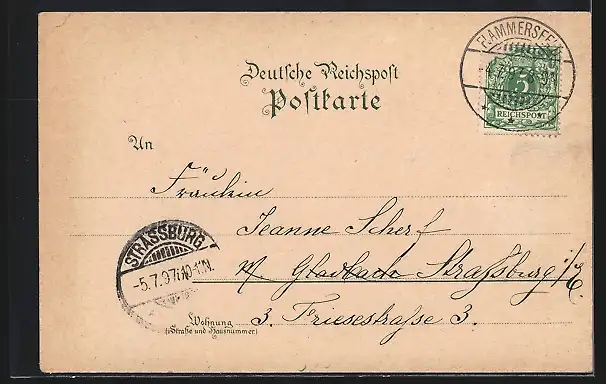 FLAMMERSFELD
5
REICHSPOST
Deutsche Reichspost
Postkarte
An
Fräulein
Jeanne Scherf
M Gladbach Strassburg i/E.
STRASSBURG
-5.7.97
Wohnung
(Straße und Hausnummer)
3. Friesestraße 3.